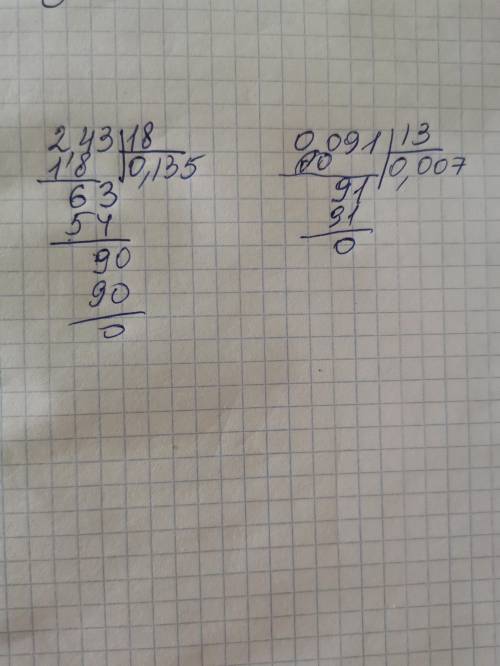 2,43 18
18 0,135
63
54
90
90
0
0,091 13
00 0,007
91
91
0